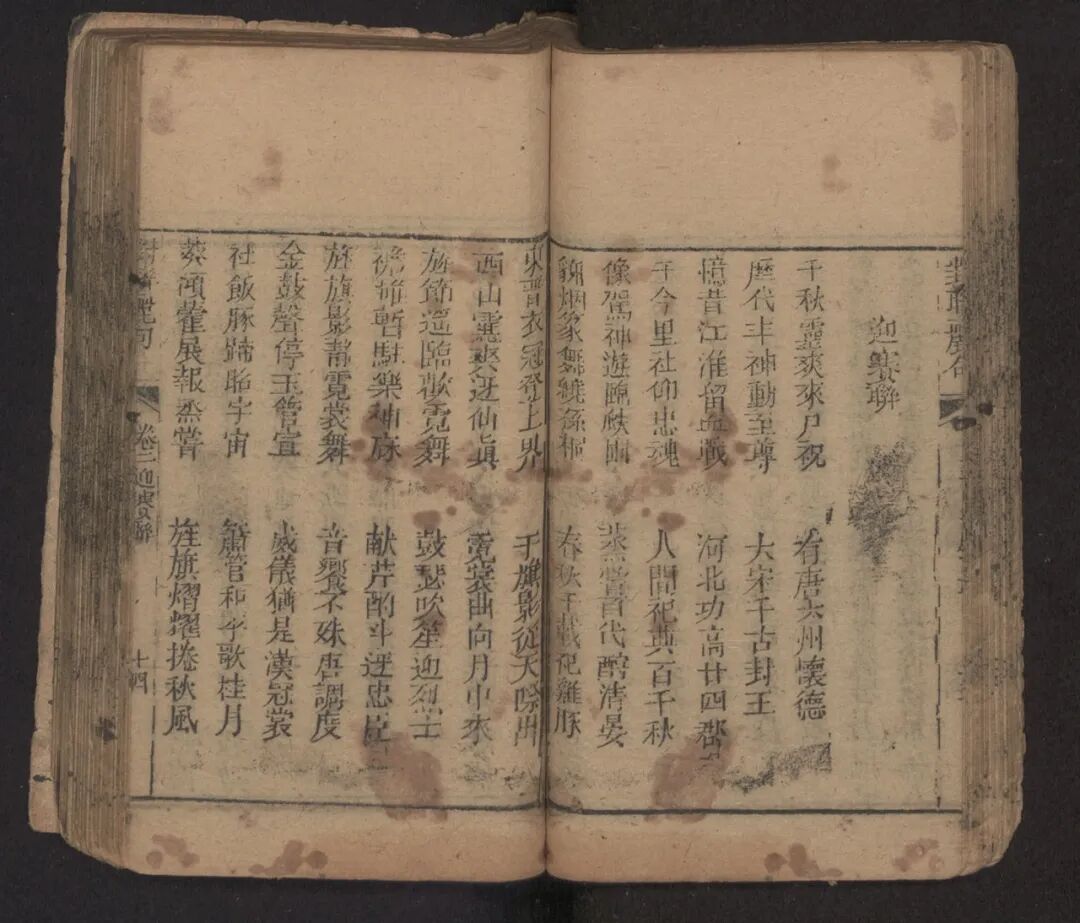 對聯麗句
迎賽聯
千秋靈爽來尸祝 有唐六州懷德
歷代丰神動至尊 大宋千古封王
憶昔江淮留血戰 河北功高廿四郡
于今里社仰忠魂 人間祀典百千秋
像駕神遊臨 蒸嘗百代醑清晏
春秋千載祀雞豚
東晋衣冠登上界 干旟影從天際出
西山靈爽迓仙眞 霓裳曲向月中來
旌節遥臨歡霓舞 鼓瑟吹笙迎烈士
襜帷暫駐樂神庥 献芹酌斗迓忠臣
旌旗影靜霓裳舞 音響不殊唐調度
金鼓聲停玉管宣 威儀猶是漢冠裳
社飯豚蹄昭宇宙 簫管和平歌桂月
葵傾藿展報蒸嘗 旌旗熠耀捲秋風
對聯麗句 卷三迎賽聯 十四